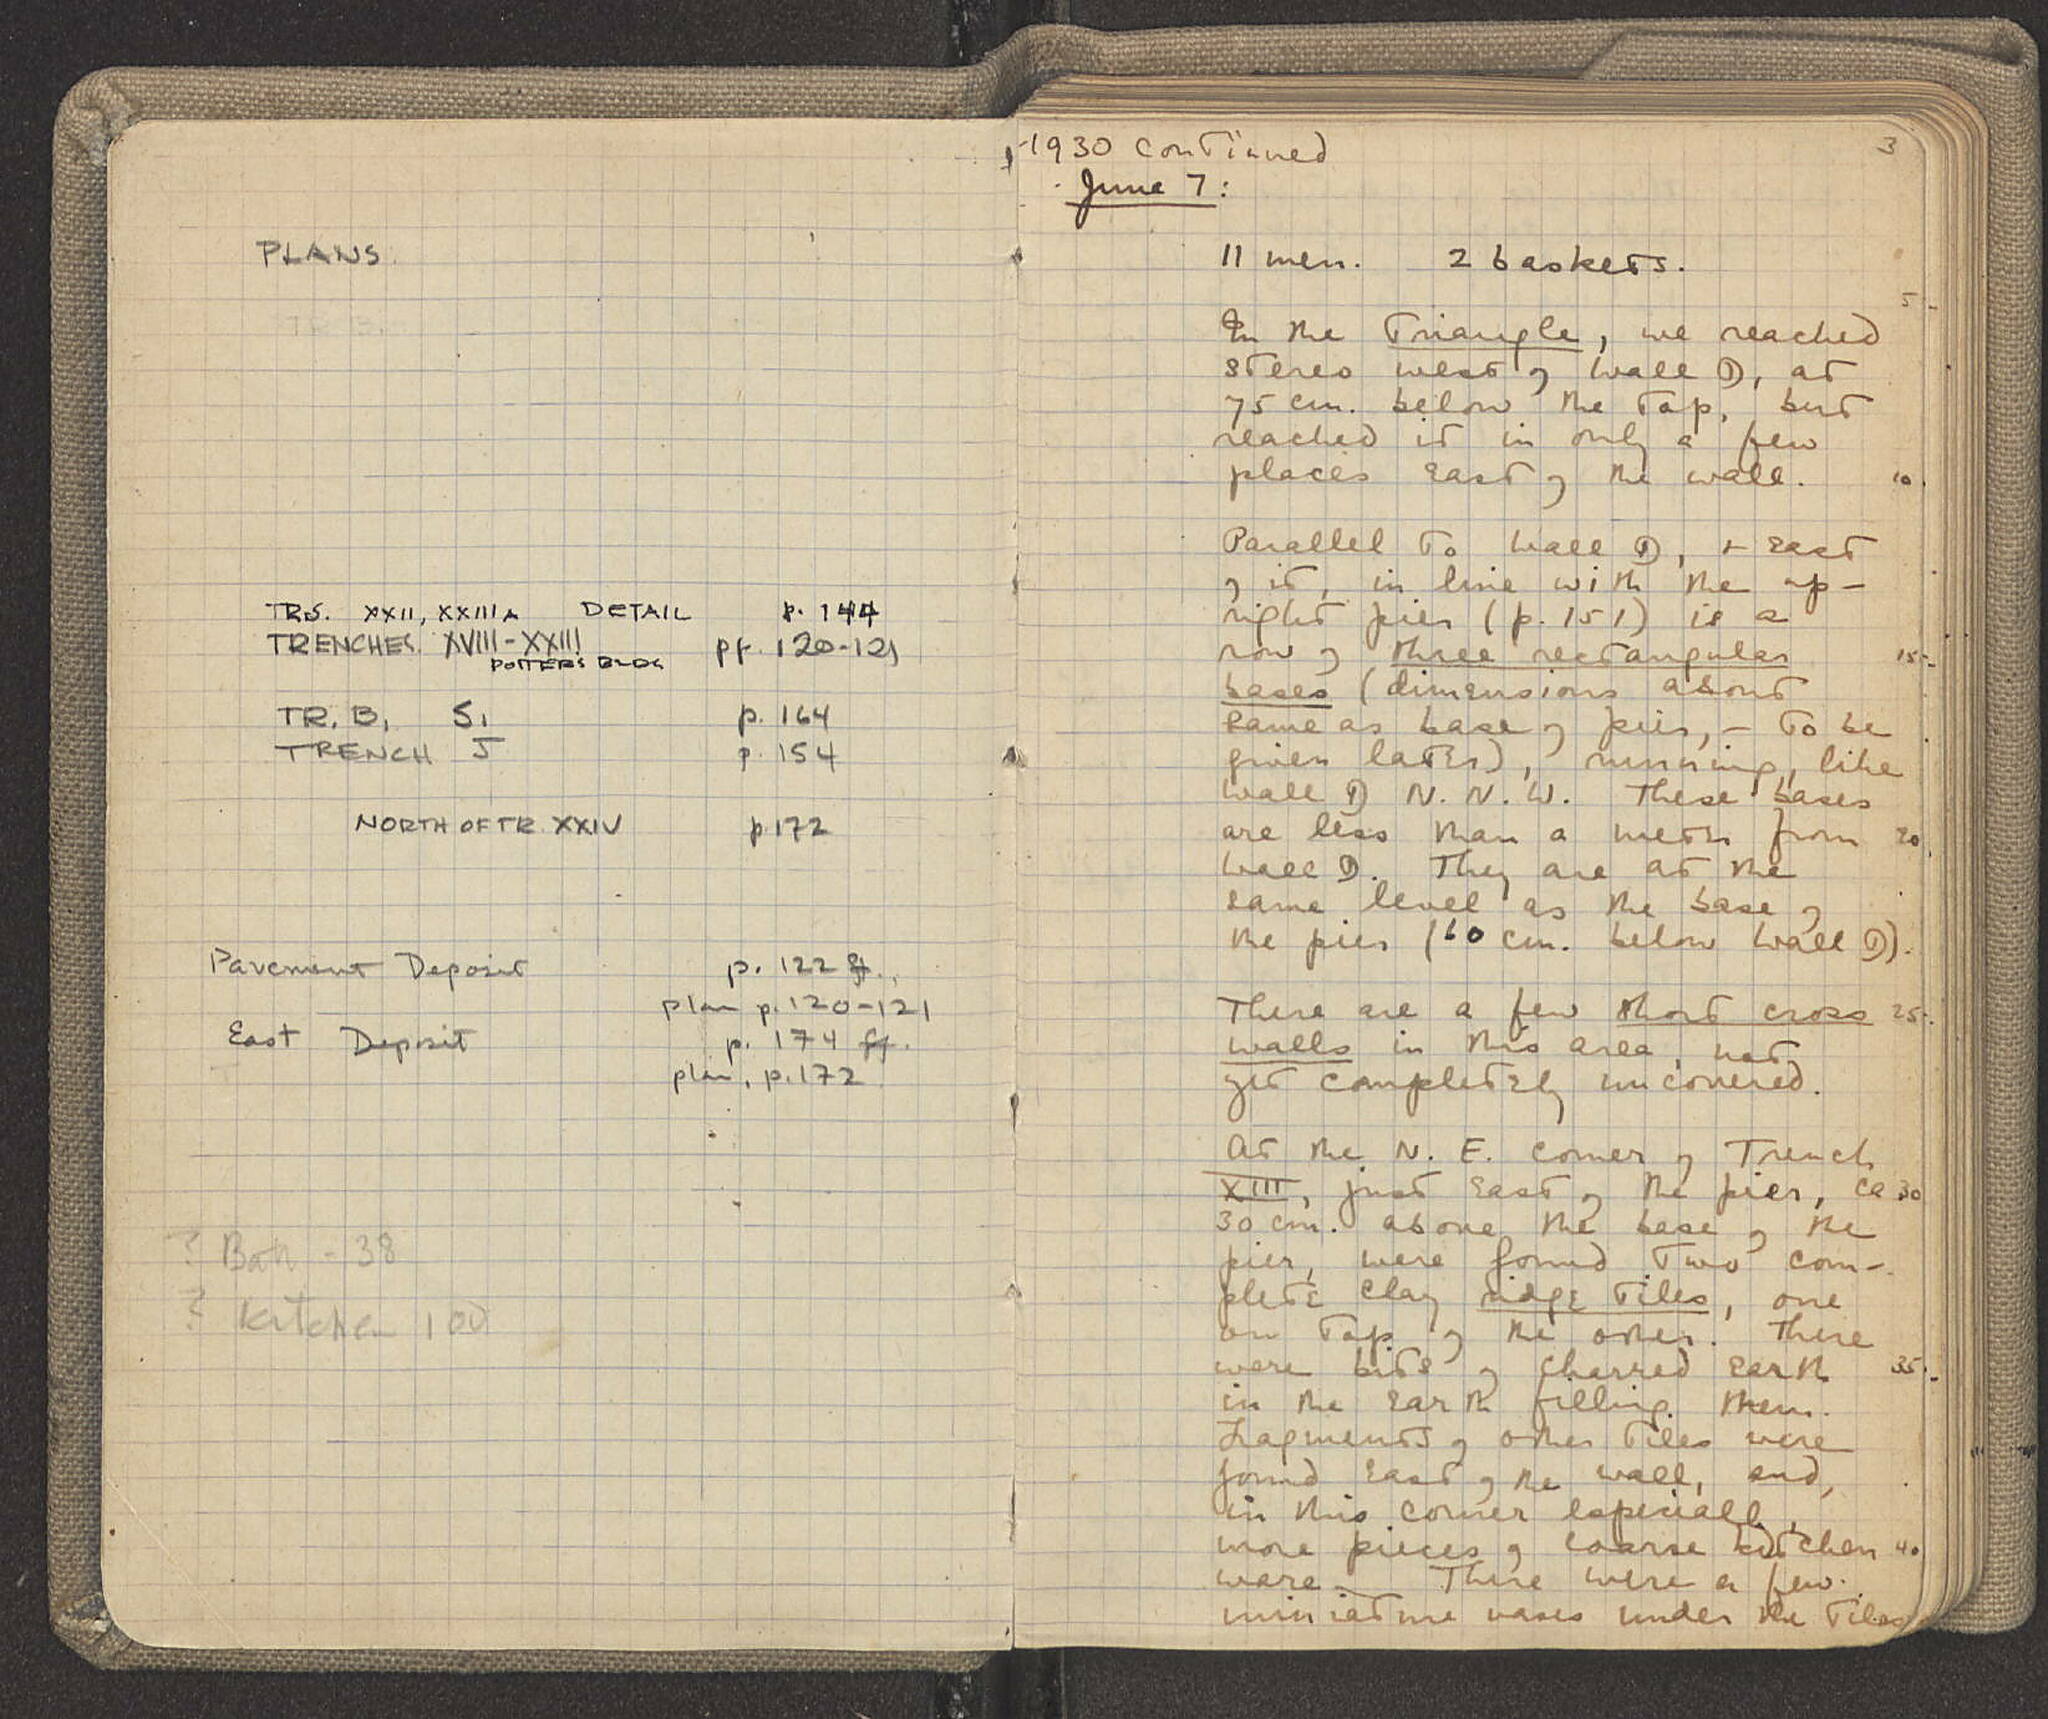 PLANS
TRS. XXII, XXIIIA DETAIL p. 144
TRENCHES XVIII-XXIII pp. 120-121
POTTERS BLDG
TR. B, S, p. 164
TRENCH J p. 154
NORTH OF TR. XXIV p. 172
Pavement Deposit p. 122 ff.
plan p. 120-121
East Deposit p. 174 ff.
plan, p. 172
? - 38
? Kitchen 100
1930 continued 3
June 7:
11 men. 2 baskets.
5
In the Triangle, we reached
stereo west of Wall D, at
75 cm. below the top, but
reached it in only a few
places east of the wall. 10
Parallel to Wall D, + east
of it, in line with the up-
right pier (p. 151) is a
row of three rectangular 15
bases (dimensions about
same as base of pier, - to be
given later), running, like
Wall D N. N. W. These bases
are less than a meter from 20
Wall D. They are at the
same level as the base of
the pier (60 cm. below Wall D).
There are a few short cross 25
walls in this area, not
yet completely uncovered.
At the N. E. corner of Trench
XIII, just east of the pier, ca 30
30 cm. above the base of the
pier, were found two com-
plete clay ridge tiles, one
on top of the other. There
were bits of charred earth 35
in the earth filling them.
Fragments of other tiles were
found east of the wall, and,
in this corner especially,
more pieces of coarse kitchen 40
ware. There were a few
miniature vases under the tiles